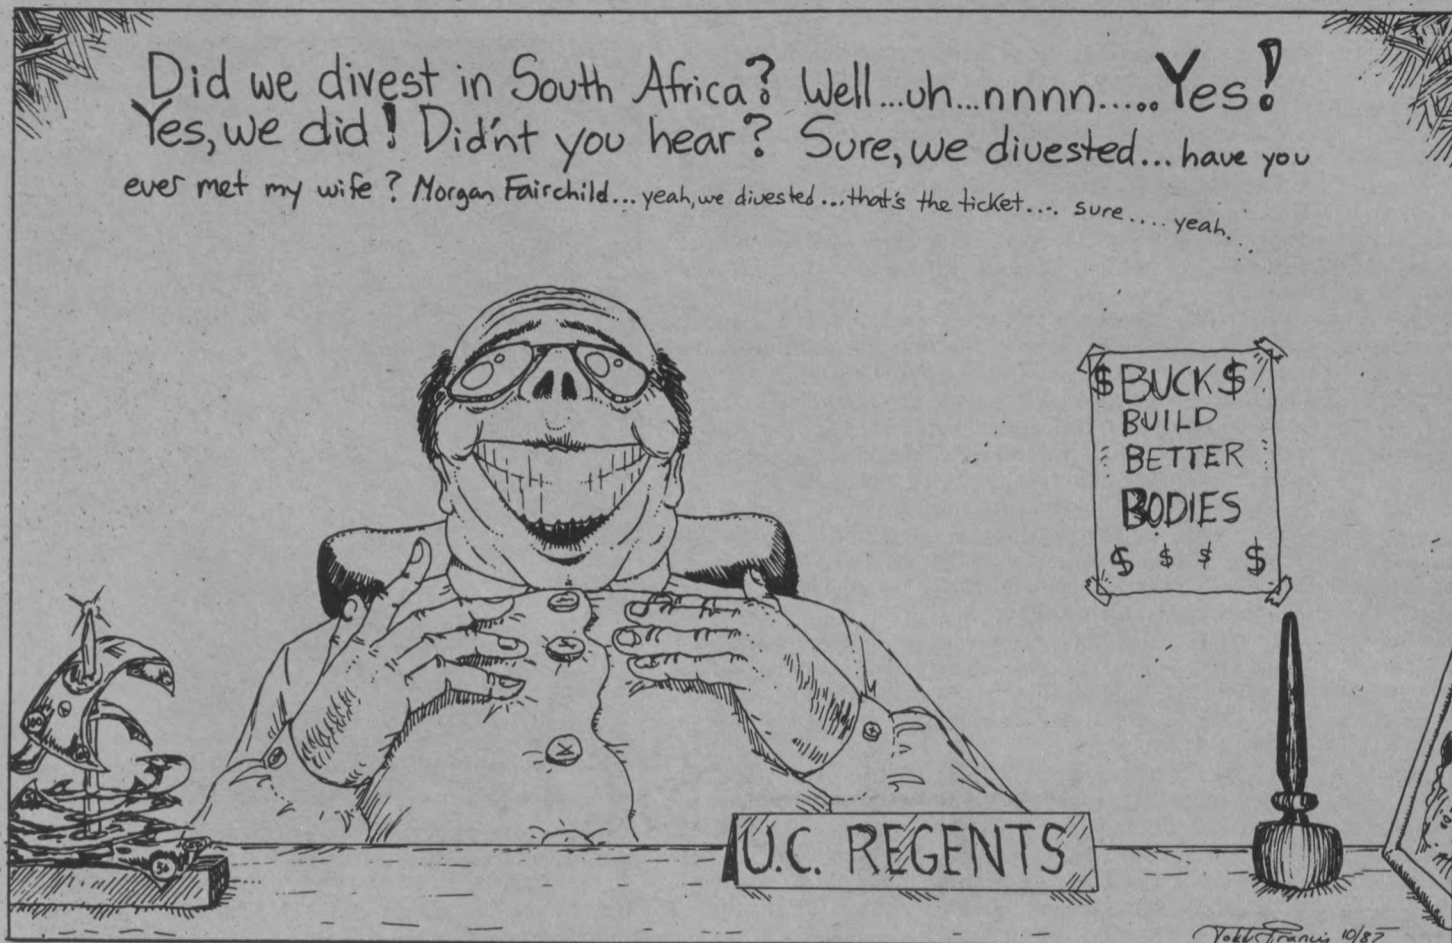 Did we divest in South Africa? Well...uh...nnnn..... Yes!
Yes, we did! Did'nt you hear? Sure, we divested... have you
ever met my wife? Morgan Fairchild... yeah, we divested... that's the ticket.... sure.... yeah...
$BUCK$
BUILD
BETTER
BODIES
$ $ $ $
100
50
U.C. REGENTS
Francis 10/87